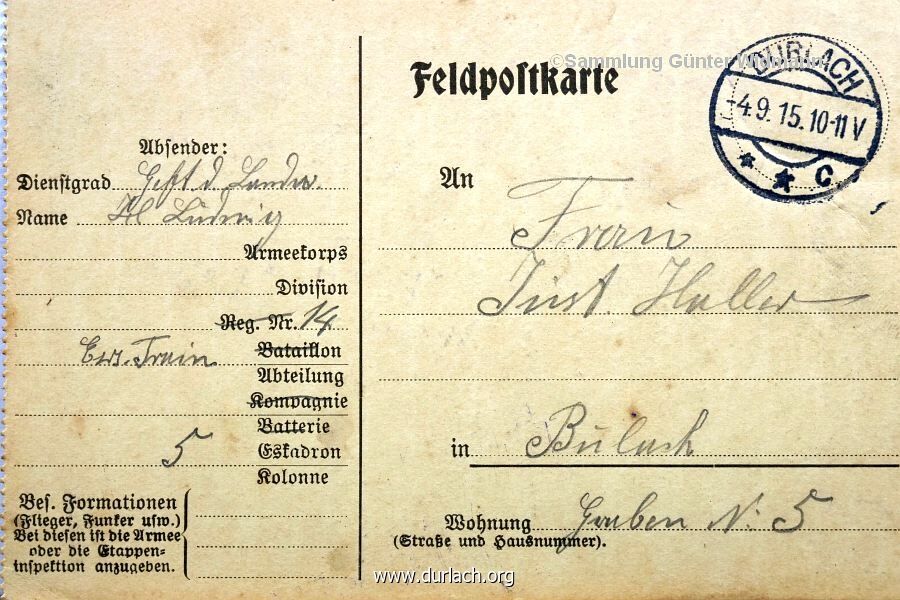 ©Sammlung Günter Widmann
DURLACH
-4.9.15.10-11 V
* * c
Feldpostkarte
Absender:
Dienstgrad Geft d. Landw.
Name Ludwig
Armeekorps
Division
Reg. Nr. 14
Ers. Train Bataillon
Abteilung
Kompagnie
Batterie
5 Eskadron
Kolonne
Bes. Formationen
(Flieger, Funker usw.)
Bei diesen ist die Armee
oder die Etappen-
inspektion anzugeben.
An Frau
Just. Haller
in Bulach
Wohnung Graben N. 5
(Straße und Hausnummer).
www.durlach.org